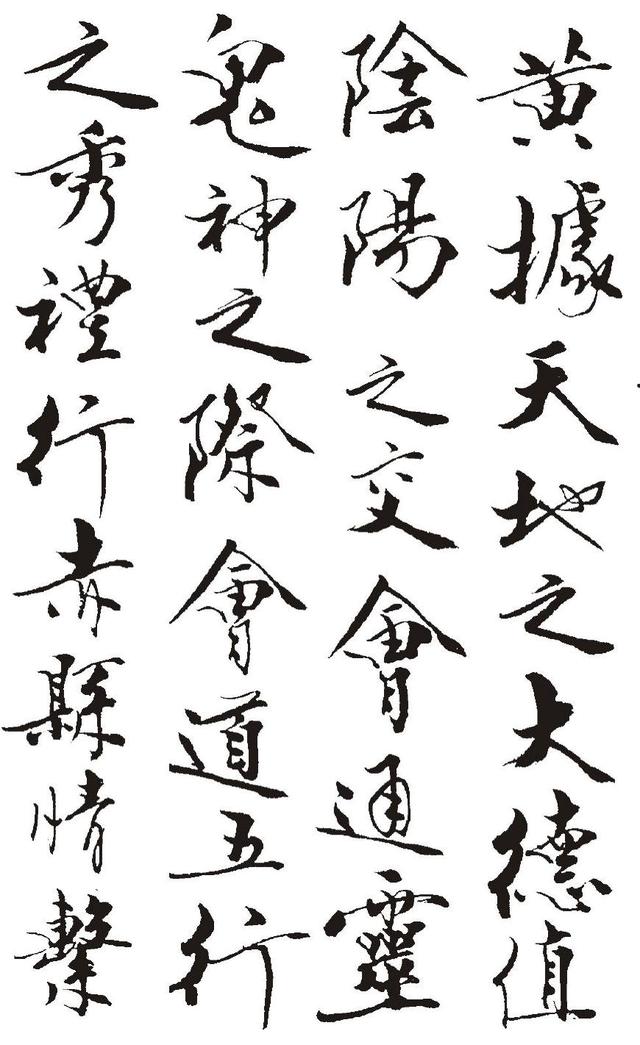 黄據天地之大德值
陰陽之交會通靈
鬼神之際會道五行
之秀禮行赤縣情繫